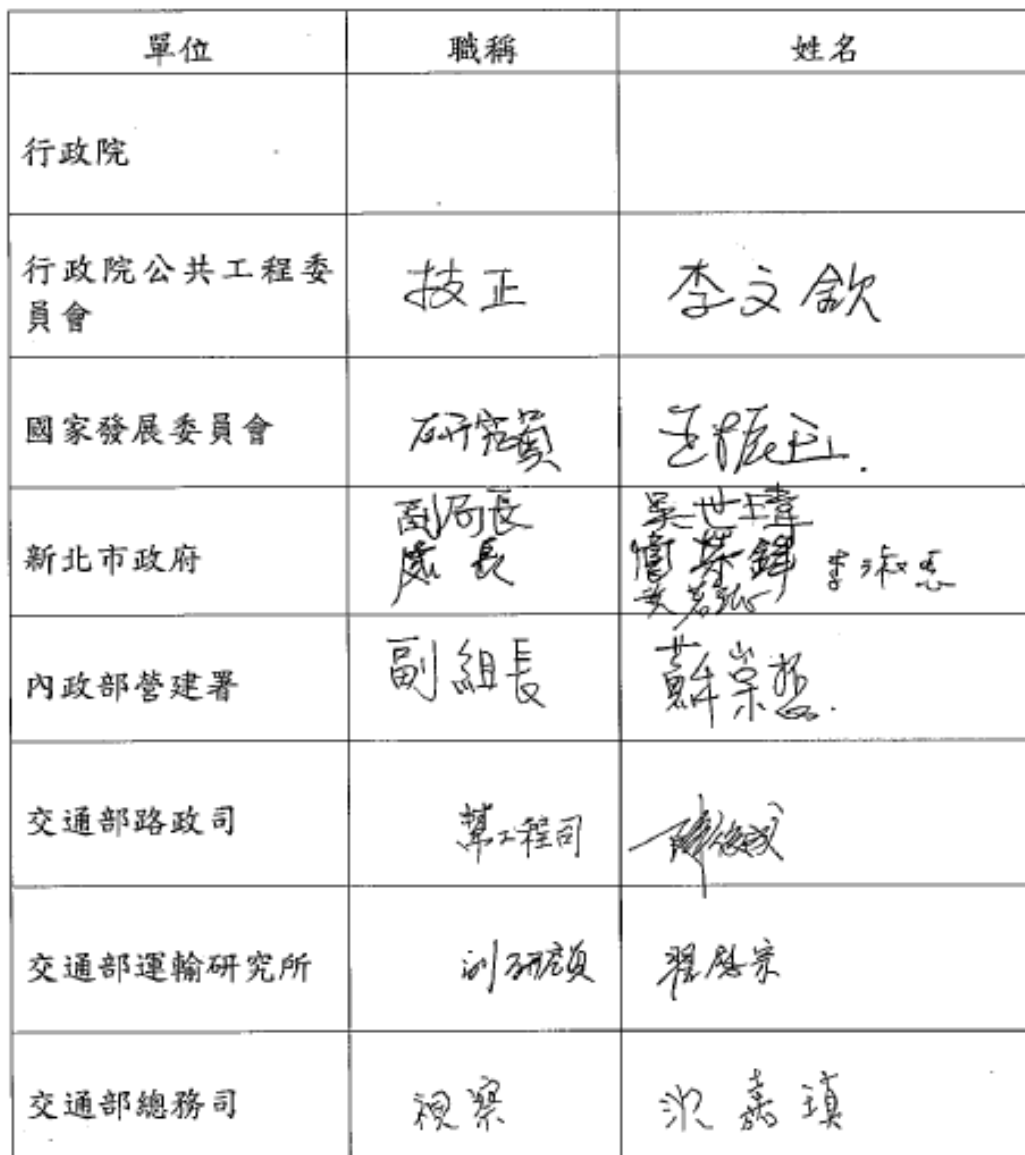 單位 職稱 姓名
行政院
行政院公共工程委
員會 技正 李文欽
國家發展委員會 研究員 王振
新北市政府 副局長 吳世瑋
處長 簡榮鋒 李淑惠
內政部營建署 副組長 蘇崇哲
交通部路政司 幫工程司 陳俊成
交通部運輸研究所 副研究員
交通部總務司 視察 沈嘉瑱